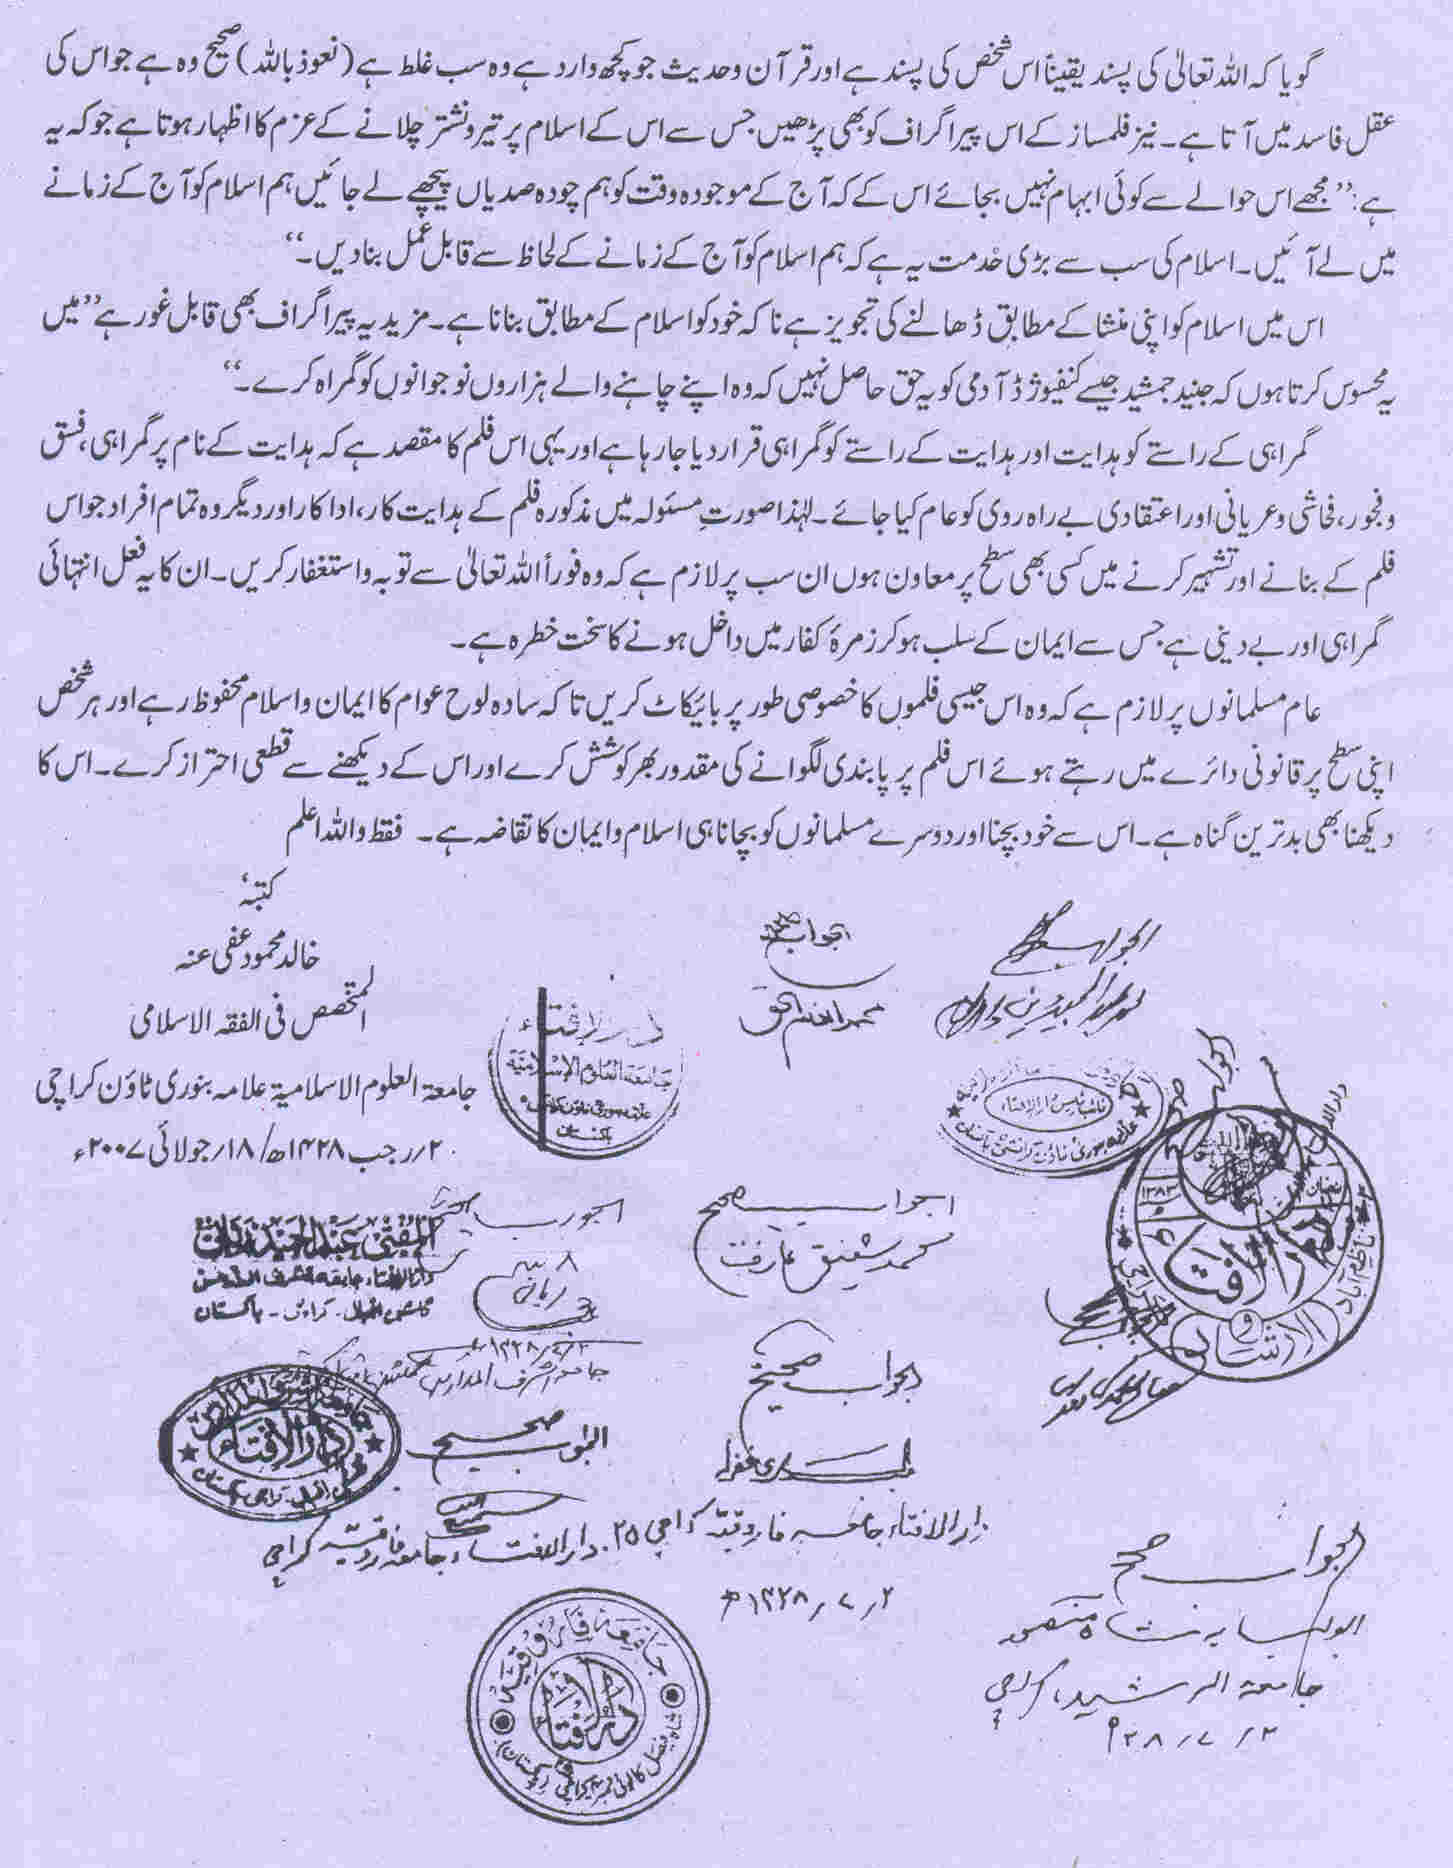 گویا کہ اللہ تعالیٰ کی پسند یقیناً اس شخص کی پسند ہے اور قرآن و حدیث جو کچھ وارد ہے وہ سب غلط ہے (نعوذ باللہ) صحیح وہ ہے جو اس کی
عقل فاسد میں آتا ہے۔ نیز فلمساز کے اس پیراگراف کو بھی پڑھیں جس سے اس کے اسلام پر تیر و نشتر چلانے کے عزم کا اظہار ہوتا ہے جو کہ یہ
ہے: ’’مجھے اس حوالے سے کوئی ابہام نہیں بجائے اس کے کہ آج کے موجودہ وقت کو ہم چودہ صدیاں پیچھے لے جائیں ہم اسلام کو آج کے زمانے
میں لے آئیں۔ اسلام کی سب سے بڑی خدمت یہ ہے کہ ہم اسلام کو آج کے زمانے کے لحاظ سے قابل عمل بنا دیں۔‘‘
اس میں اسلام کو اپنی منشا کے مطابق ڈھالنے کی تجویز ہے نا کہ خود کو اسلام کے مطابق بنانا ہے۔ مزید یہ پیراگراف بھی قابل غور ہے ’’میں
یہ محسوس کرتا ہوں کہ جنید جمشید جیسے کنفیوژڈ آدمی کو یہ حق حاصل نہیں کہ وہ اپنے چاہنے والے ہزاروں نوجوانوں کو گمراہ کرے۔‘‘
گمراہی کے راستے کو ہدایت اور ہدایت کے راستے کو گمراہی قرار دیا جا رہا ہے اور یہی اس فلم کا مقصد ہے کہ ہدایت کے نام پر گمراہی، فسق
و فجور، فحاشی و عریانی اور اعتقادی بے راہ روی کو عام کیا جائے۔ لہٰذا صورتِ مسئولہ میں مذکورہ فلم کے ہدایت کار، اداکار اور دیگر وہ تمام افراد جو اس
فلم کے بنانے اور تشہیر کرنے میں کسی بھی سطح پر معاون ہوں ان سب پر لازم ہے کہ وہ فوراً اللہ تعالیٰ سے توبہ و استغفار کریں۔ ان کا یہ فعل انتہائی
گمراہی اور بے دینی ہے جس سے ایمان کے سلب ہو کر زمرۂ کفار میں داخل ہونے کا سخت خطرہ ہے۔
عام مسلمانوں پر لازم ہے کہ وہ اس جیسی فلموں کا خصوصی طور پر بائیکاٹ کریں تا کہ سادہ لوح عوام کا ایمان و اسلام محفوظ رہے اور ہر شخص
اپنی سطح پر قانونی دائرے میں رہتے ہوئے اس فلم پر پابندی لگوانے کی مقدور بھر کوشش کرے اور اس کے دیکھنے سے قطعی احتراز کرے۔ اس کا
دیکھنا بھی بدترین گناہ ہے۔ اس سے خود بچنا اور دوسرے مسلمانوں کو بچانا ہی اسلام و ایمان کا تقاضہ ہے۔ فقط واللہ اعلم
کتبہٗ
خالد محمود عفی عنہ
المتخصص فی الفقہ الاسلامی
جامعۃ العلوم الاسلامیۃ علامہ بنوری ٹاؤن کراچی
۲/رجب ۱۴۲۸ھ/۱۸/جولائی ۲۰۰۷ء
الجواب صحیح
الجواب صحیح
محمد انعام الحق
دارالافتاء
جامعۃ العلوم الاسلامیۃ
علامہ بنوری ٹاؤن کراچی ۵
پاکستان
الجواب صحیح
محمد شفیق عارف
الجواب صحیح
المفتی عبدالحمید ربانی
دارالافتاء جامعہ اشرف المدارس
گلشن اقبال - کراچی - پاکستان
دارالافتاء والارشاد
ناظم آباد
الجواب صحیح
الجواب صحیح
دارالافتاء جامعہ فاروقیہ کراچی ۲۵
۲/۷/۱۴۲۸ھ
دارالافتاء جامعہ فاروقیہ کراچی
جامعہ فاروقیہ
دارالافتاء
شاہ فیصل کالونی نمبر ۴ کراچی (پاکستان)
الجواب صحیح
ابولبابہ شاہ منصور
جامعۃ الرشید، کراچی
۲/۷/۲۸ھ